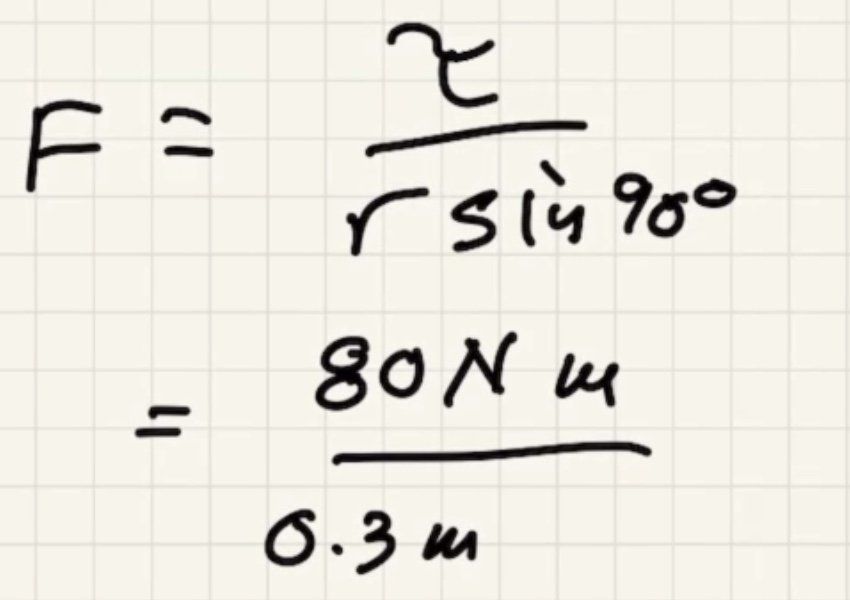 F = τ / r sin 90°
= 80 N m / 0.3 m